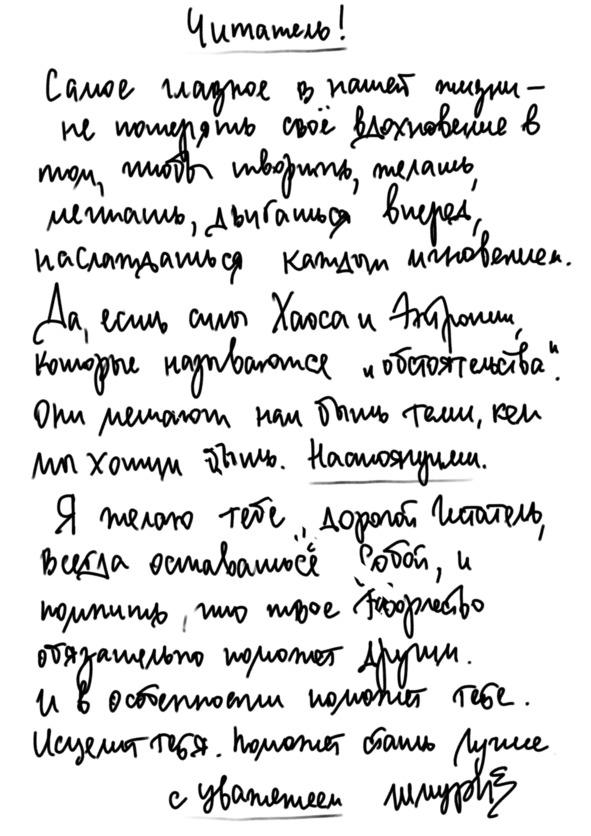 Читатель!
Самое главное в нашей жизни –
не потерять своё вдохновение в
том, чтобы творить, желать,
мечтать, двигаться вперед,
наслаждаться каждым мгновением.
Да, есть силы Хаоса и Энтропии,
которые называются "обстоятельства".
Они мешают нам быть теми, кем
мы хотим быть. Настоящими.
Я желаю тебе, дорогой Читатель,
всегда оставаться Собой, и
помнить, что твое творчество
обязательно поможет другим.
И в особенности поможет тебе.
Исцелит тебя. Поможет стать лучше
с уважением